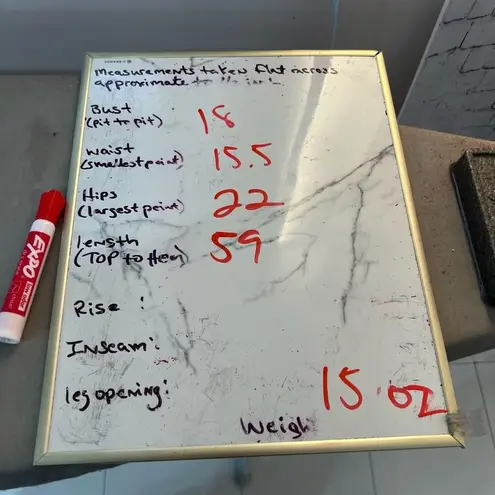 Measurements taken flat across
approximate to the
Bust
(pit to pit) 18
Waist
(smallest point) 15.5
Hips
(largest point) 22
length
(TOP to Hem) 59
Rise :
Inseam:
leg opening:
15 oz
Weigh
EXPO